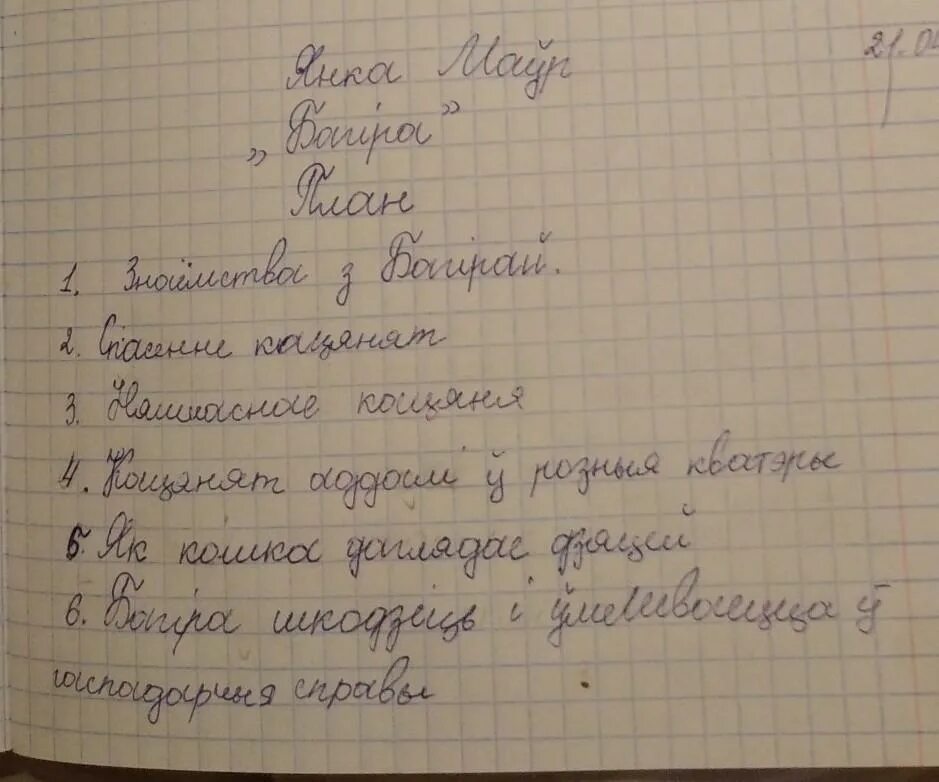 21.04
Янка Маўр
„Багіра”
План
1. Знаёмства з Багірай.
2. Спасенне кацянят
3. Няшчаснае кацяня
4. Кацянят аддалі ў розныя кватэры
5. Як кошка даглядае дзяцей
6. Багіра шкодзіць і ўмешваецца ў
гаспадарчыя справы